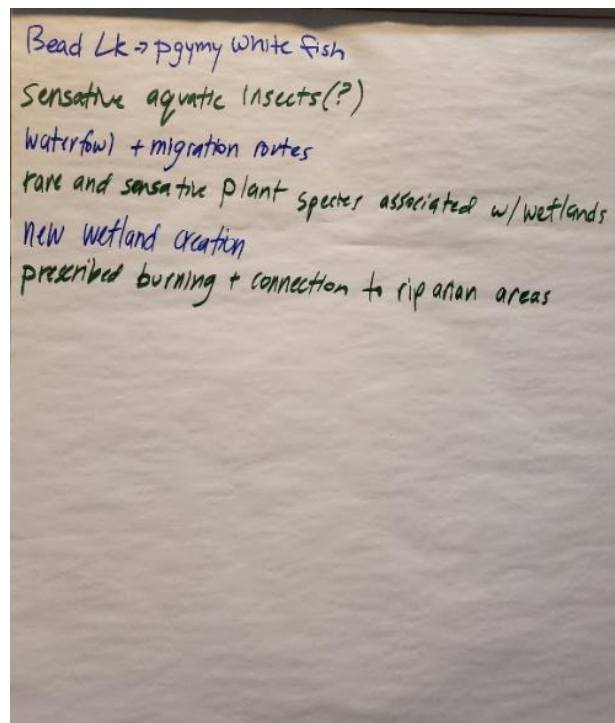 Bead Lk → pgymy white fish
Sensative aquatic insects(?)
waterfowl + migration routes
rare and sensative plant species associated w/wetlands
new wetland creation
prescribed burning + connection to riparian areas